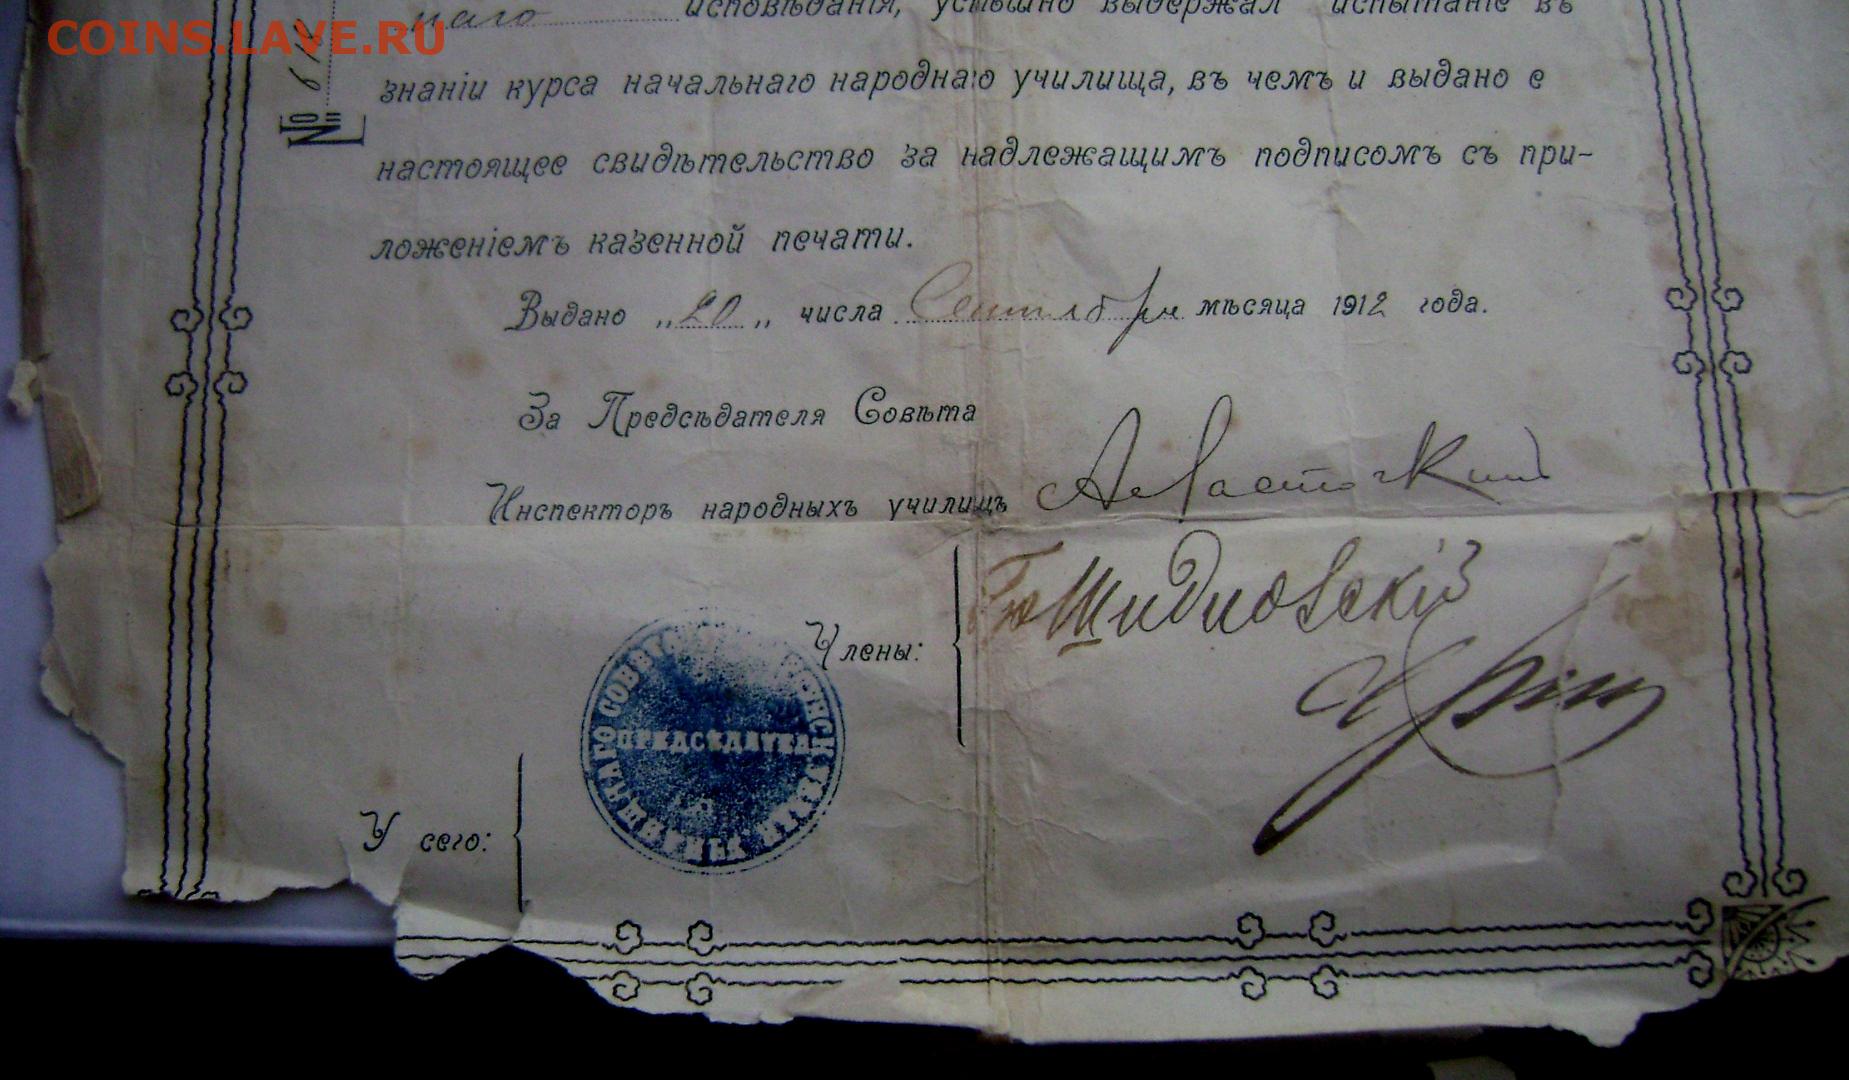 COINS.LAVE.RU
наго исповѣданія, успѣшно выдержал испытаніе въ
знаніи курса начальнаго народнаго училища, въ чемъ и выдано е
настоящее свидѣтельство за надлежащимъ подписомъ съ при-
ложеніемъ казенной печати.
Выдано „20„ числа Сентября мѣсяца 1912 года.
За Предсѣдателя Совѣта
Инспекторъ народныхъ училищъ
Члены:
ПРЕДСѢДАТЕЛЬ
У сего:
№